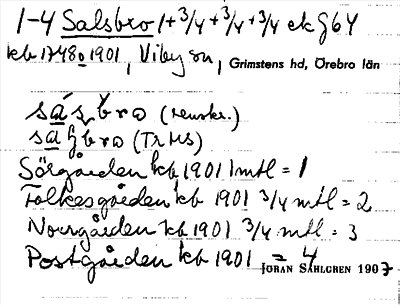 1-4 Salsbro 1+3/4+3/4+3/4 ek § 64
kb 1748 o 1901, Viby sn, Grimstens hd, Örebro län
(renskr.)
(TRHS)
Sörgården kb 1901 1 mtl = 1
Folkesgården kb 1901 3/4 mtl = 2
Norrgården kb 1901 3/4 mtl = 3
Postgården kb 1901 = 4
JÖRAN SAHLGREN 1907